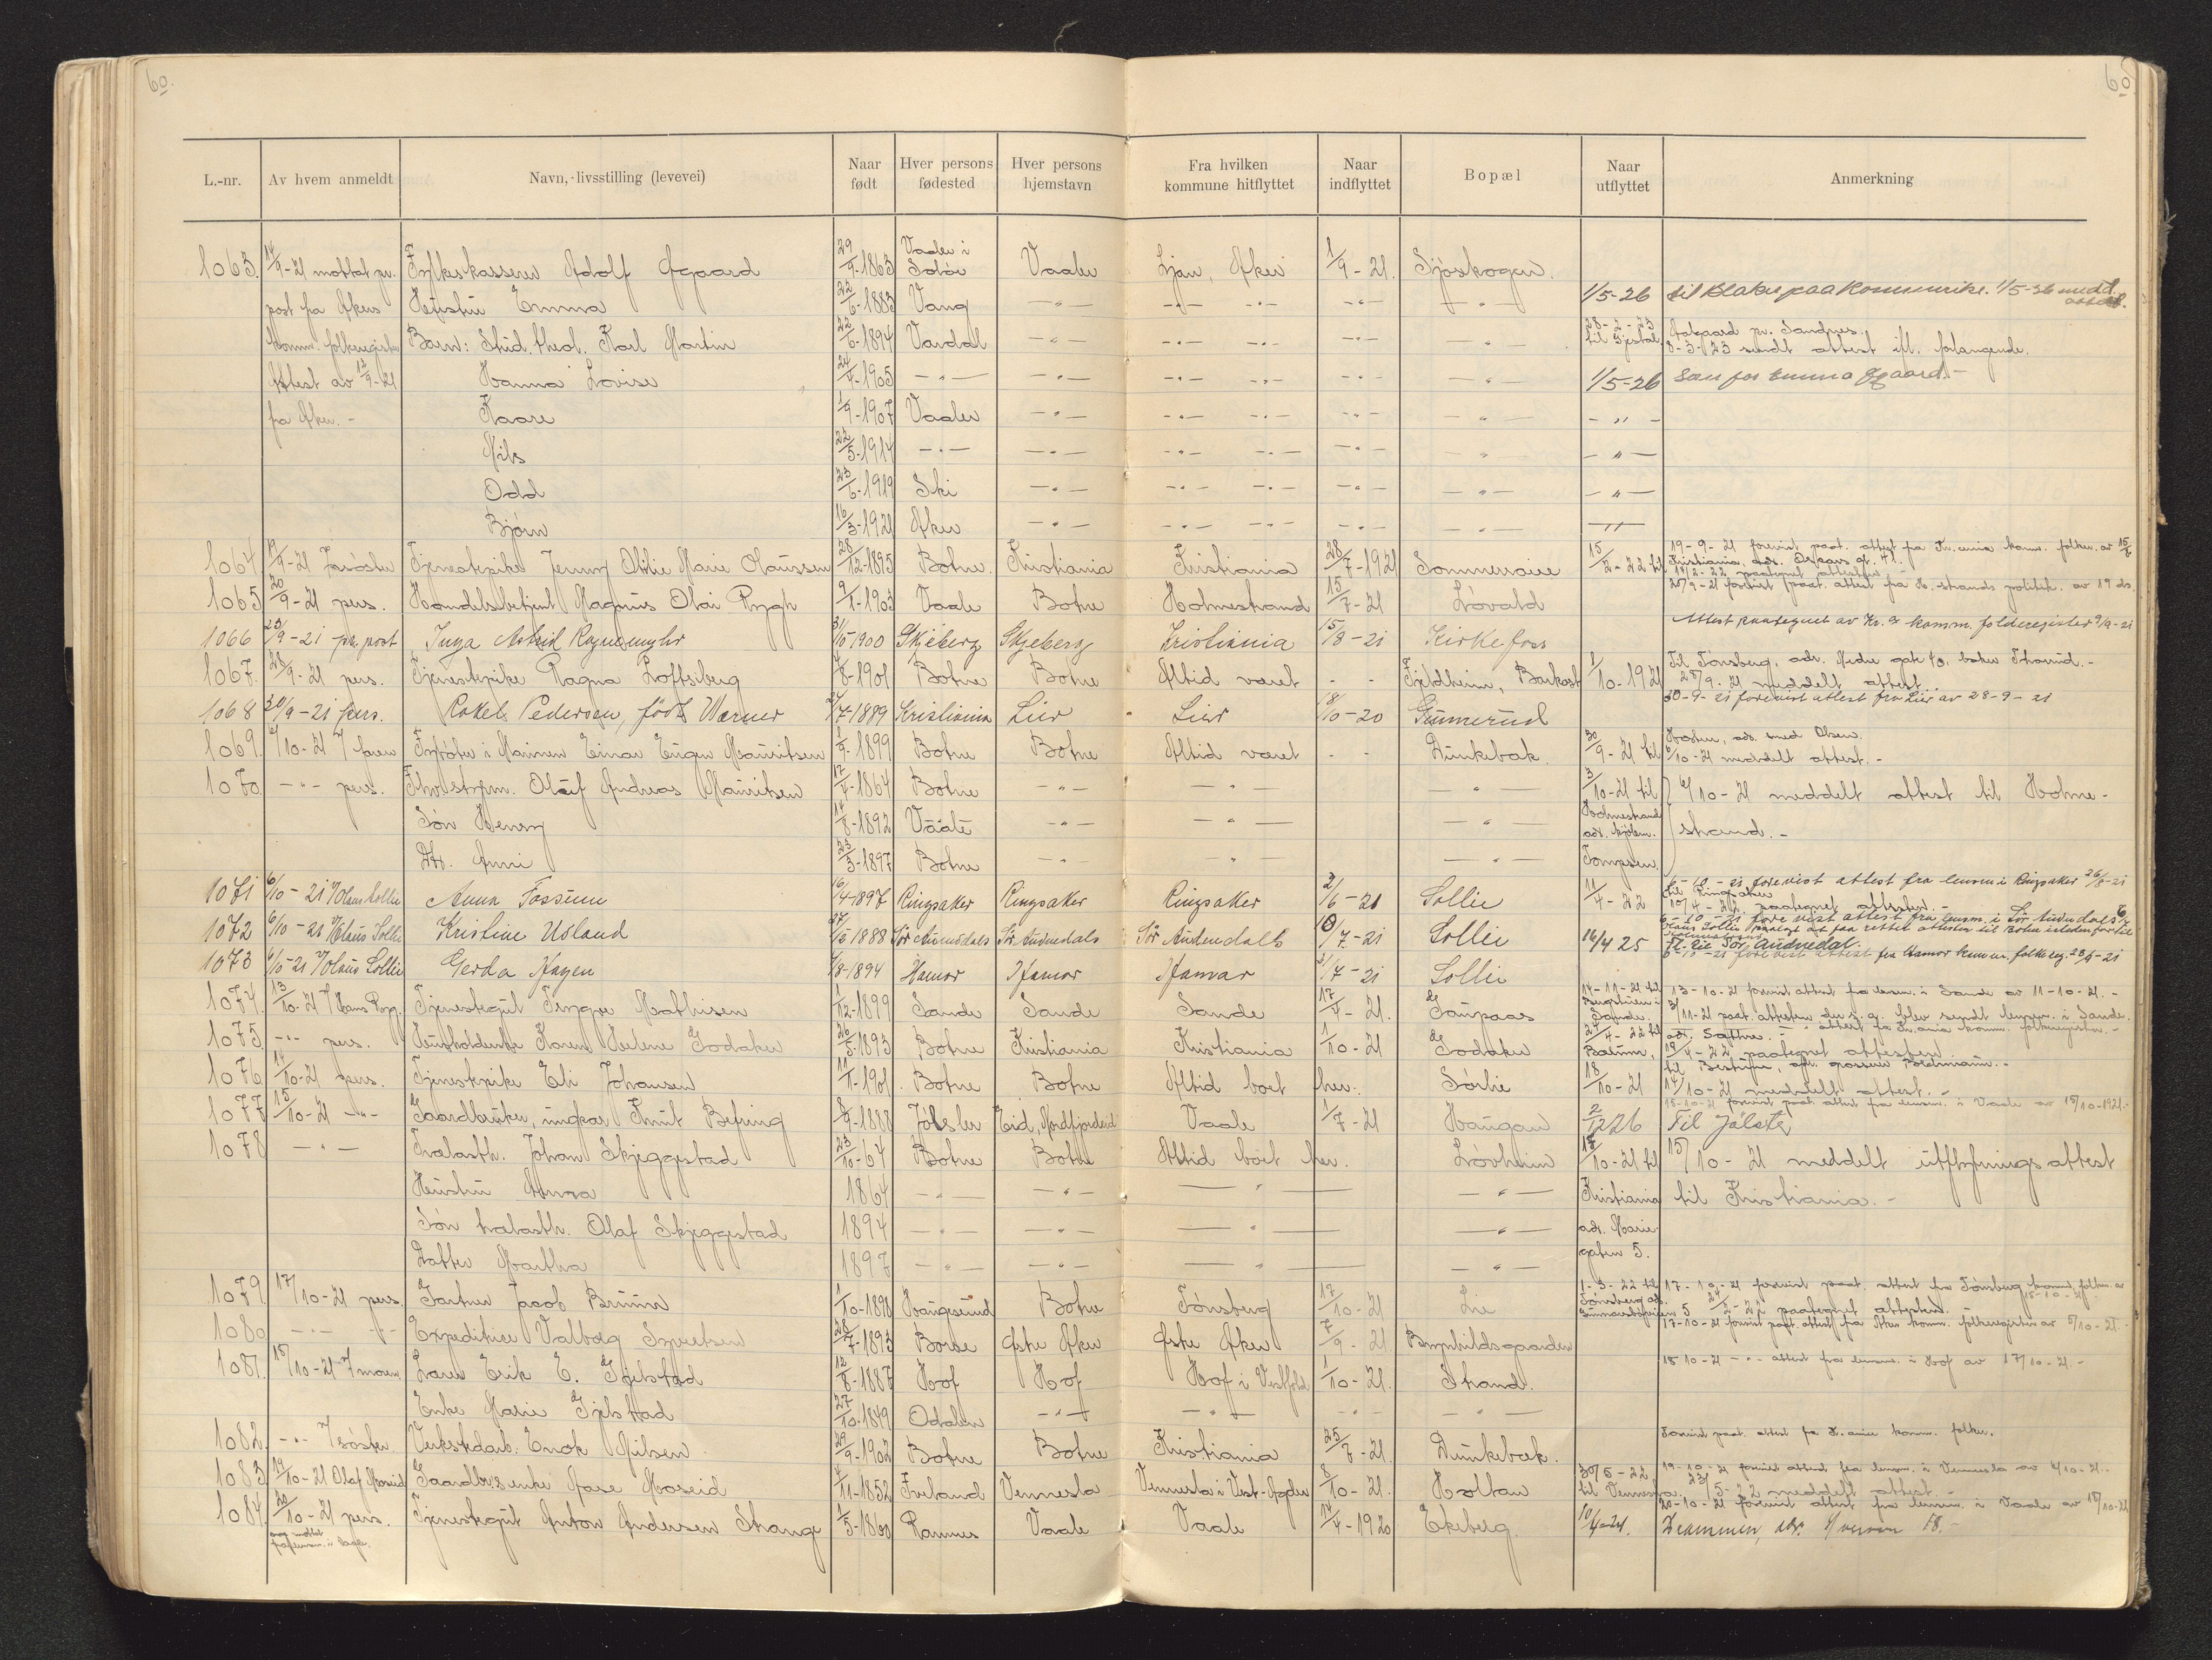 60. 60.
L.-nr. Av hvem anmeldt Navn, livsstilling (levevei) Naar født Hver persons fødested Hver persons hjemstavn Fra hvilken kommune hitflyttet Naar indflyttet Bopæl Naar utflyttet Anmerkning
1063. 14/9-21 mottat pr. Fylkeskasserer Adolf Øgaard 29/9-1863 Vaaler i Solør Vaaler Ljan, Aker 1/9-21. Sjøskogen.
post fra Akers Hustru Emma 22/6-1883 Vang -"- -"- -"- -"- -"- 1/5-26 til Blaker paa Romerike. 1/5-26 medd. attest.
komm. folkeregister Barn: Stud. theol. Karl Martin 22/6-1894 Vardal -"- -"- -"- -"- -"- 28-2-23 til Gjestal, Aalgaard pr. Sandnes. 8-3-23 sendt attest ifl. forlangende.
Attest av 12/9-21 Hanna Lovise 24/4-1905 -"- -"- -"- -"- -"- -"- 1/5-26 Som for Emma Øgaard.-
fra Aker.- Kaare 1/9-1907 Vaaler -"- -"- -"- -"- -"- -"-
Nils 22/5-1914 -"- -"- -"- -"- -"- -"- -"-
Odd 23/6-1919 Ski -"- -"- -"- -"- -"- -"-
Bjørn 16/3-1921 Aker -"- -"- -"- -"- -"- -"-
1064. 19/9-21 Tjenestepike Jenny Otilie Marie Claussen 28/12-1895 Botne. Kristiania Kristiania 28/7-1921 Sommerroie 15/2-22 til 19-9-21 forevist paat. attest fra Kr.ania komm. folker. av 15/8
Kristiania, adr. Oskars gt. 41. 14/2-22 paategnet attesten.
1065 20/9-21 pers. Handelsbetjent Magnus Olai Rygh 9/1-1903 Vaale Botne Holmestrand 15/7-21 Løvald 20/9-21 forevist paat. attest fra H.strands politik. av 19 ds.
1066 23/9-21 pr. post Inga Astrid Rognemyhr 31/10-1900 Skjeberg Skjeberg Kristiania 15/8-21 Kirkefoss Attest paategnet av Kr.a komm. folkeregister 9/9-21
1067. 28/9-21 pers. Tjenestepike Ragna Loftsberg 4/8-1901 Botne Botne Altid været - - Fjeldheim, Backost 1/10-1921 Til Tønsberg, adr. Nedre gate 40, baker Thorud.-
28/9-21 meddelt attest.
1068 30/9-21 pers. Rakel Pedersen, født Werner 2/7-1889 Kristiania Lier Lier 18/10-20 Gunnerud 30-9-21 forevist attest fra Lier av 28-9-21
1069. 6/10-21 v/ faren Fyrbøter i Marinen Einar Eugen Mauritsen 1/9-1899 Botne Botne Altid været - - Dunkebæk. 30/9-21 til Horten, adr. smed Olsen. 6/10-21 meddelt attest.-
1070 -"- pers. Olaf Andreas Mauritsen 17/4-1864 Botne -"- -"- -"- 3/10-21 til 6/10-21 meddelt attest til Holme-
Søn Henry 14/8-1892 Vaale -"- -"- -"- Holmestrand strand.-
Dtr. Anni 23/3-1897 Botne -"- -"- -"- Tompsen
1071 6/10-21 v/ Olaus Sollie Anna Fossum 16/4-1897 Ringsaker Ringsaker Ringsaker 2/6-21 Sollie 11/4-22 6-10-21 forevist attest fra lensm. i Ringsaker 26/8-21
til Ringsaker 10/4-22. paategnet attesten.-
1072 6/10-21 v/ Olaus Sollie Kristine Usland 27/10 1888 Sør Audnedals Sør Audnedals Sør Audendalls 10/7-21 Sollie 16/4 25 6-10-21 forevist attest fra lensm. i Sør Audndals
Fl. til Sør Audnedal.
1073 6/10-21 v/ Olaus Sollie Gerda Hagen 1/8-1894 Hamar Hamar Hamar 31/7-21 Sollie 6-10-21 forevist attest fra Hamar komm. folkereg. 28/9-21
1074. 13/10-21 v/ Hans Rygg. Tjenestegut Trygve Mathisen 1/12-1899 Sande Sande Sande 17/4-21. Gaupaas 14-11-21 til 13-10-21 forevist attest fra lensm. i Sande av 11-10-21.-
3/11-21 paat. attesten der s. g. blev sendt lensm. i Sande.
1075. -"- pers. Husholderske Karen Helene Godaker 26/5-1893 Botne Kristiania Kristiania 1/10-21 Godaker 24/4-22 til Bærum, 19/4-22 paategnet attesten.
1076 14/10-21 pers. Tjenestepike Eli Johansen 11/1-1901. Botne Botne Altid boet her. Sørlie 18/10-21 til Bestum,
14/10-21 meddelt attest.-
1077 15/10-21 -"- Gaardbruker, ungkar Knut Befring 8/9-1888 Jølster Eid, Nordfjordeid Vaale 1/7-21 Haugan 2/12 26 15-10-21 forevist paat. attest fra lensm. i Vaale av 15/10-1921.-
Til Jølster
1078 -"- Trælasth. Johan Skjeggestad 23/10-64 Botne Botne Altid boet her. Løvheim 17/10-21 til 15/10-21 meddelt utflytningsattest
Hustru Anna 1864 -"- -"- -"- -"- Kristiania til Kristiania.-
Søn trælasth. Olaf Skjeggestad 1894 -"- -"- -"- -"- adr. Marie-
Datter Martha 1897 -"- -"- -"- -"- gaten 5.
1079. 17/10-21 pers. Gartner Jacob Bruun 1/10-1898 Haugesund Botne Tønsberg 17/10-21 Lie 1-3-22 til Tønsberg 17-10-21 forevist paat. attest fra Tønsberg komm. folker. av 15-10-21
24/2-22 paategnet attesten.
1080 -"- -"- Expeditrice Valborg Syvertsen 28/7-1893 Borre Østre Aker Østre Aker 7/9-21 Brynhildsgaarden 17-10-21 forevist paat. attest fra Aker komm. folkeregister av 5/10-21.-
1081. 18/10-21 v/ moren Lars Erik E. Gjelstad 12/8-1887 Hof Hof Hof i Vestfold 1/10-21. Strand. 18/10-21 -"- attest fra lensm. i Hof av 17/10-21.-
Enke Marie Gjelstad 27/10-1849 Odalen -"- -"- -"- -"-
1082. -"- v/ søster Verkstedarb. Enok Nilsen 29/9-1902 Botne Botne Kristiania 25/8-21. Dunkebæk. Forevist paat. attest fra Kr.ania komm. folker.
1083 19/10-21 Olaf Moseid Gaardbr.s enke Aase Moseid 4/11-1852 Iveland Vennesla Vennesla i Vest-Agder 8/10-21. Holtan 30/5-22 til Vennesla. 19-10-21 forevist attest fra lensm. i Vennesla av 4/10-21.-
23/5-22 meddelt attest.-
1084. 20/10-21 pers. Tjenestegut Anton Andersen Strange 1/5-1860 Ramnes Vaale Vaale 14/4-1920 Ekeberg. 10/4-24. 20-10-21 forevist attest fra lensm. i Vaale av 18/10-21
Drammen, adr.